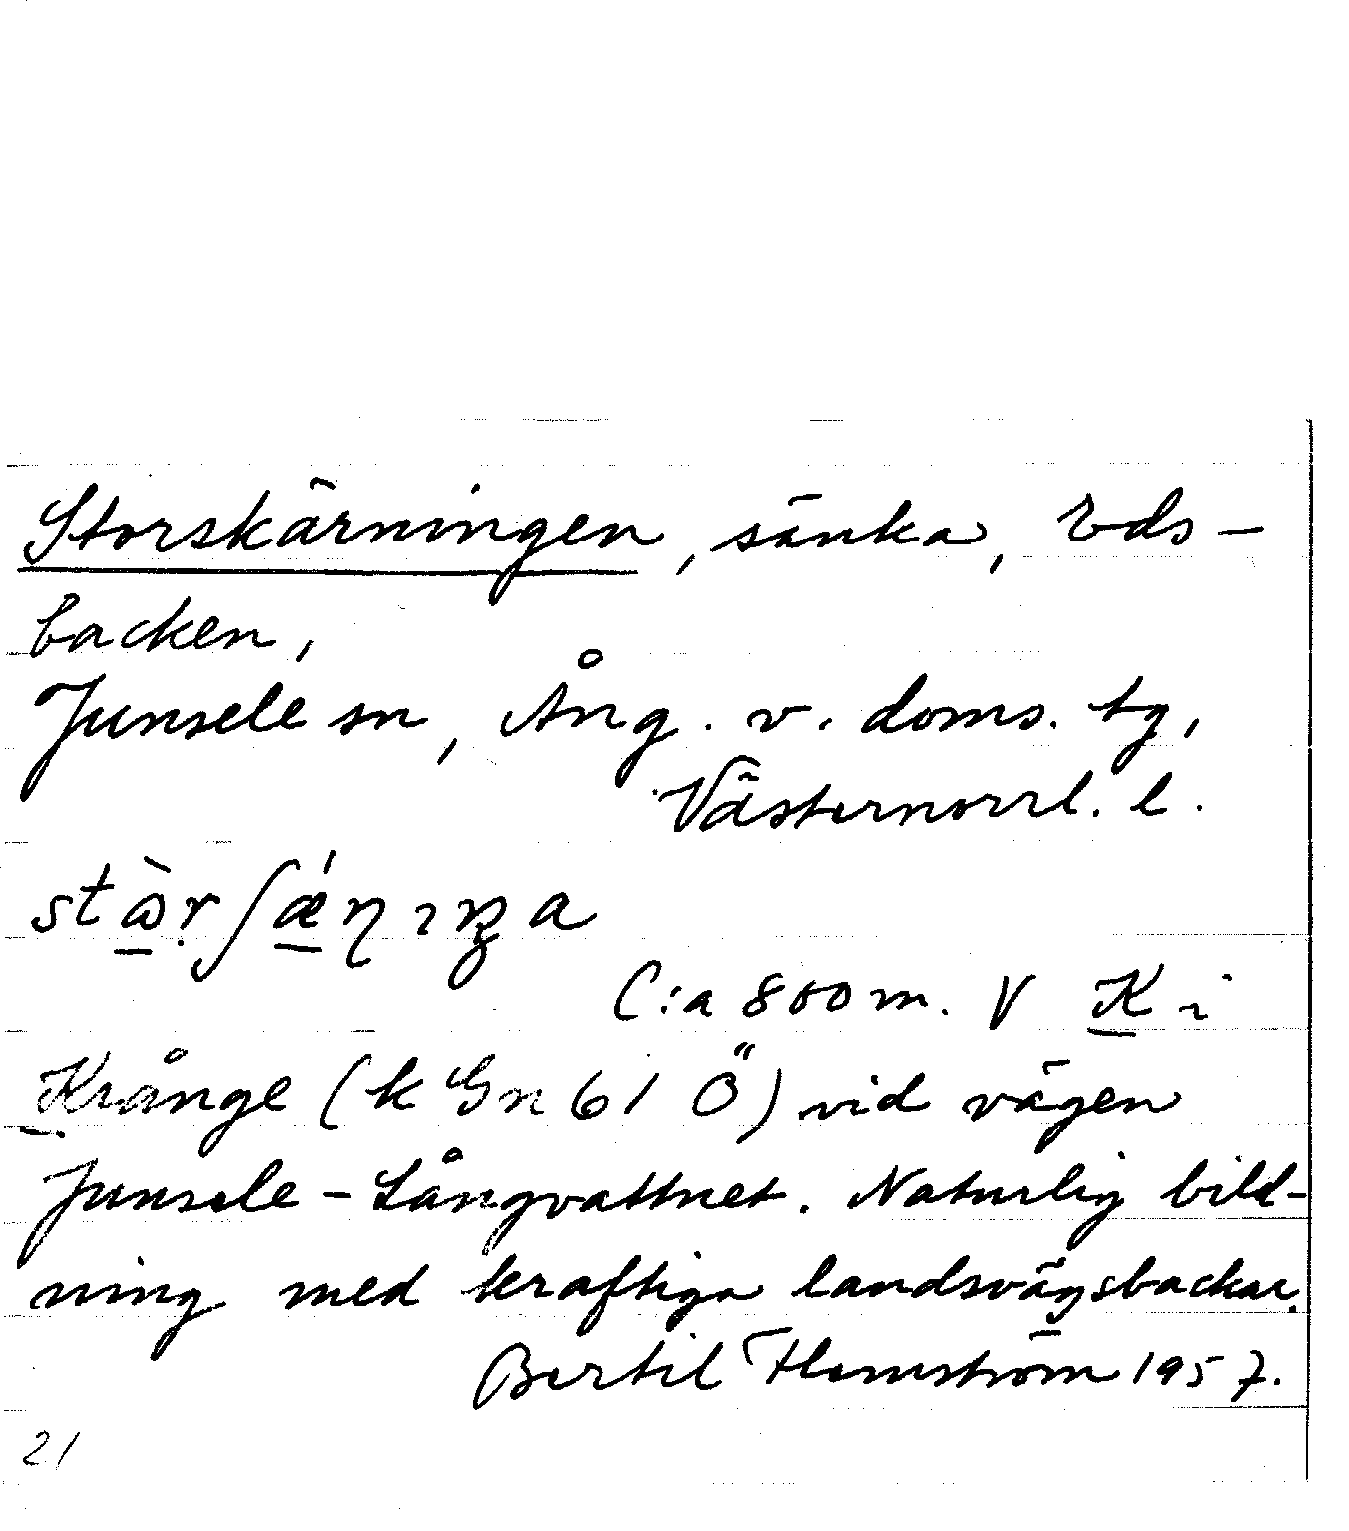 Storskärningen, sänka, Eds-
backen,
Junsele sn, Ång. v. doms. tg,
Västernorrl. l.
C:a 800 m. V K i
Krånge (k Gn 61 Ö) vid vägen
Junsele - Långvattnet. Naturlig bild-
ning med kraftiga landsvägsbackar.
Bertil Flemström 1957.
21